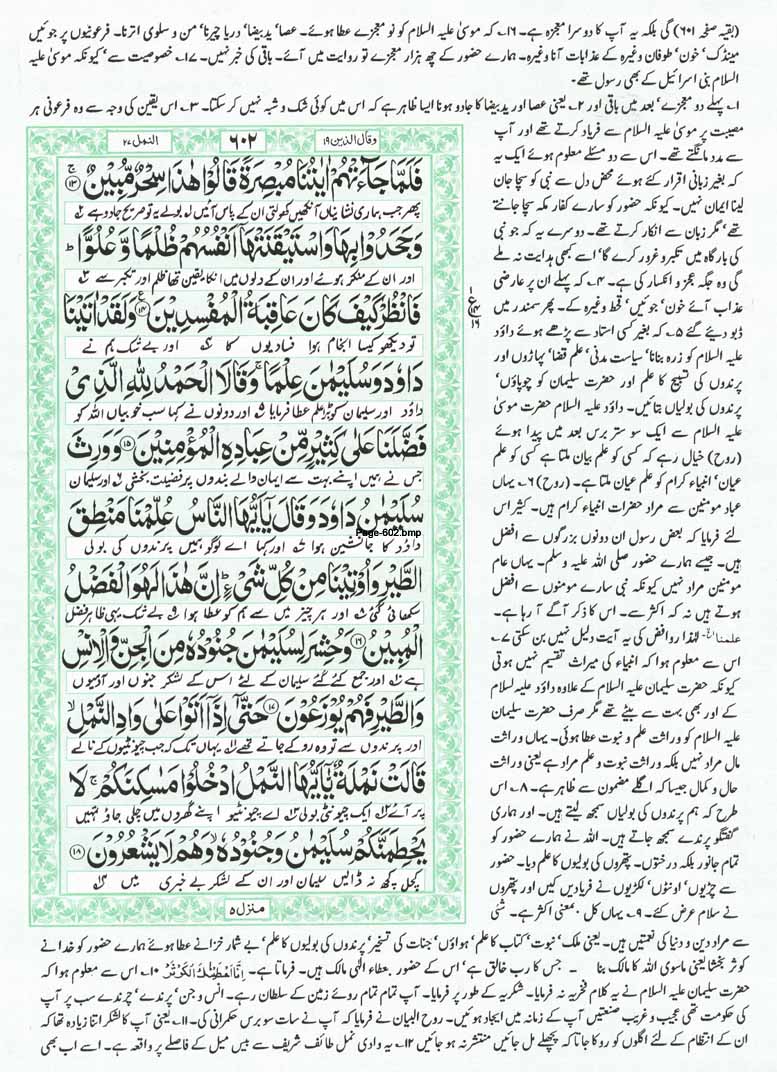 (بقیہ صفحہ ۶۰۱) گی بلکہ یہ آپ کا دوسرا معجزہ ہے۔ ۱۶؎ کہ موسیٰ علیہ السلام کو نو معجزے عطا ہوئے۔ عصا' ید بیضا' دریا چیرنا' من و سلوی اترنا۔ فرعونیوں پر جوئیں
مینڈک' خون' طوفان وغیرہ کے عذابات آنا وغیرہ۔ ہمارے حضور کے چھ ہزار معجزے تو روایت میں آئے۔ باقی کی خبر نہیں۔ ۱۷؎ خصوصیت سے' کیونکہ موسیٰ علیہ
السلام بنی اسرائیل کے بھی رسول تھے۔
۱؎ پہلے دو معجزے' بعد میں باقی اور ۲؎ یعنی عصا اور ید بیضا کا جادو ہونا ایسا ظاہر ہے کہ اس میں کوئی شک و شبہ نہیں کر سکتا۔ ۳؎ اس یقین کی وجہ سے وہ فرعونی ہر
مصیبت پر موسیٰ علیہ السلام سے فریاد کرتے تھے اور آپ
سے مدد مانگتے تھے۔ اس سے دو مسئلے معلوم ہوئے ایک یہ
کہ بغیر زبانی اقرار کئے ہوئے محض دل سے نبی کو سچا جان
لینا ایمان نہیں۔ کیونکہ حضور کو سارے کفار مکہ سچا جانتے
تھے' مگر زبان سے انکار کرتے تھے۔ دوسرے یہ کہ جو نبی
کی بارگاہ میں تکبر و غرور کرے گا' اسے کبھی ہدایت نہ ملے
گی وہ جگہ عجز و انکسار کی ہے۔ ۴؎ کہ پہلے ان پر عارضی
عذاب آئے خون' جوئیں' قحط وغیرہ کے۔ پھر سمندر میں
ڈبو دیئے گئے ۵؎ کہ بغیر کسی استاد سے پڑھے ہوئے داؤد
علیہ السلام کو زرہ بنانا' سیاست مدنی' علم قضا' پہاڑوں اور
پرندوں کی تسبیح کا علم اور حضرت سلیمان کو چوپاؤں'
پرندوں کی بولیاں بتائیں۔ داؤد علیہ السلام حضرت موسیٰ
علیہ السلام سے ایک سو ستر برس بعد میں پیدا ہوئے
(روح) خیال رہے کہ کسی کو علم بیان ملتا ہے کسی کو علم
عیان' انبیاء کرام کو علم عیان ملتا ہے۔ (روح) ۶؎ یہاں
عباد مومنین سے مراد حضرات انبیاء کرام ہیں۔ کثیر اس
لئے فرمایا کہ بعض رسول ان دونوں بزرگوں سے افضل
ہیں۔ جیسے ہمارے حضور صلی اللہ علیہ وسلم۔ یہاں عام
مومنین مراد نہیں کیونکہ نبی سارے مومنوں سے افضل
ہوتے ہیں نہ کہ اکثر سے۔ اس کا ذکر آگے آ رہا ہے۔
علمنا الخ۔ لہٰذا روافض کی یہ آیت دلیل نہیں بن سکتی ۷؎
اس سے معلوم ہوا کہ انبیاء کی میراث تقسیم نہیں ہوتی
کیونکہ حضرت سلیمان علیہ السلام کے علاوہ داؤد علیہ السلام
کے اور بھی بہت سے بیٹے تھے مگر صرف حضرت سلیمان
علیہ السلام کو وراثت علم و نبوت عطا ہوئی۔ یہاں وراثت
مال مراد نہیں بلکہ وراثت نبوت و علم مراد ہے یعنی وراثت
حال و کمال جیسا کہ اگلے مضمون سے ظاہر ہے۔ ۸؎ اس
طرح کہ ہم پرندوں کی بولیاں سمجھ لیتے ہیں۔ اور ہماری
گفتگو پرندے سمجھ جاتے ہیں۔ اللہ نے ہمارے حضور کو
تمام جانور بلکہ درختوں۔ پتھروں کی بولیوں کا علم دیا۔ حضور
سے چڑیوں' اونٹوں' لکڑیوں نے فریادیں کیں اور پتھروں
نے سلام عرض کئے۔ ۹؎ یہاں کل بمعنی اکثر ہے۔ شئی
وقال الذین ۱۹
۶۰۲
النمل ۲۷
فَلَمَّا جَآءَتْهُمْ اٰیٰتُنَا مُبْصِرَةً قَالُوْا هٰذَا سِحْرٌ مُّبِیْنٌ ۱۳
پھر جب ہماری نشانیاں آنکھیں کھولتی ان کے پاس آئیں ۱؎ بولے یہ تو صریح جادو ہے ۲؎
وَ جَحَدُوْا بِهَا وَ اسْتَیْقَنَتْهَاۤ اَنْفُسُهُمْ ظُلْمًا وَّ عُلُوًّاؕ
اور ان کے منکر ہوئے اور ان کے دلوں میں انکا یقین تھا ظلم اور تکبر سے ۳؎
فَانْظُرْ كَیْفَ كَانَ عَاقِبَةُ الْمُفْسِدِیْنَ ۱۴ وَ لَقَدْ اٰتَیْنَا
تو دیکھو کیسا انجام ہوا فسادیوں کا ۴؎ اور بے شک ہم نے
دَاوٗدَ وَ سُلَیْمٰنَ عِلْمًاۚ وَ قَالَا الْحَمْدُ لِلّٰهِ الَّذِیْ
داؤد اور سلیمان کو بڑا علم عطا فرمایا ۵؎ اور دونوں نے کہا سب خوبیاں اللہ کو
فَضَّلَنَا عَلٰی كَثِیْرٍ مِّنْ عِبَادِهِ الْمُؤْمِنِیْنَ ۱۵ وَ وَرِثَ
جس نے ہمیں اپنے بہت سے ایمان والے بندوں پر فضیلت بخشی ۶؎ اور سلیمان
سُلَیْمٰنُ دَاوٗدَ وَ قَالَ یٰۤاَیُّهَا النَّاسُ عُلِّمْنَا مَنْطِقَ
داؤد کا جانشین ہوا ۷؎ اور کہا اے لوگو ہمیں پرندوں کی بولی
Page-602.bmp
الطَّیْرِ وَ اُوْتِیْنَا مِنْ كُلِّ شَیْءٍؕ اِنَّ هٰذَا لَهُوَ الْفَضْلُ
سکھائی گئی ۸؎ اور ہر چیز میں سے ہم کو عطا ہوا ۹؎ بے شک یہی ظاہر فضل
الْمُبِیْنُ ۱۶ وَ حُشِرَ لِسُلَیْمٰنَ جُنُوْدُهٗ مِنَ الْجِنِّ وَ الْاِنْسِ
ہے ۱۰؎ اور جمع کئے گئے سلیمان کے لئے اس کے لشکر جنوں اور آدمیوں
وَ الطَّیْرِ فَهُمْ یُوْزَعُوْنَ ۱۷ حَتّٰۤی اِذَاۤ اَتَوْا عَلٰی وَادِ النَّمْلِۙ
اور پرندوں سے تو وہ روکے جاتے تھے ۱۱؎ یہاں تک کہ جب چیونٹیوں کے نالے
قَالَتْ نَمْلَةٌ یّٰۤاَیُّهَا النَّمْلُ ادْخُلُوْا مَسٰكِنَكُمْۚ لَا
پر آئے ۱۲؎ ایک چیونٹی بولی ۱۳؎ اے چیونٹیو اپنے گھروں میں چلی جاؤ تمہیں
یَحْطِمَنَّكُمْ سُلَیْمٰنُ وَ جُنُوْدُهٗۙ وَ هُمْ لَا یَشْعُرُوْنَ ۱۸
کچل نہ ڈالیں سلیمان اور ان کے لشکر بے خبری میں ۱۴؎
منزل ۵
سے مراد دین و دنیا کی نعمتیں ہیں۔ یعنی ملک' نبوت' کتاب کا علم' ہواؤں' جنات کی تسخیر' پرندوں کی بولیوں کا علم' بے شمار خزانے عطا ہوئے ہمارے حضور کو خدا نے
کوثر بخشا یعنی ماسوی اللہ کا مالک بنا ۔ جس کا رب خالق ہے' اس کے حضور بعطاء الٰہی مالک ہیں۔ فرماتا ہے۔ اِنَّاۤ اَعْطَیْنٰكَ الْكَوْثَرَ ۱۰؎ اس سے معلوم ہوا کہ
حضرت سلیمان علیہ السلام نے یہ کلام فخریہ نہ فرمایا۔ شکریہ کے طور پر فرمایا۔ آپ تمام تمام روئے زمین کے سلطان رہے۔ انس و جن' پرندے' چرندے سب پر آپ
کی حکومت تھی عجیب و غریب صنعتیں آپ کے زمانہ میں ایجاد ہوئیں۔ روح البیان نے فرمایا کہ آپ نے سات سو برس حکمرانی کی۔ ۱۱؎ یعنی آپ کا لشکر اتنا زیادہ تھا کہ
ان کے انتظام کے لئے اگلوں کو روکا جاتا کہ پچھلے مل جائیں منتشر نہ ہو جائیں ۱۲؎ یہ وادی نمل طائف شریف سے بیس میل کے فاصلے پر واقعہ ہے۔ اسے اب بھی